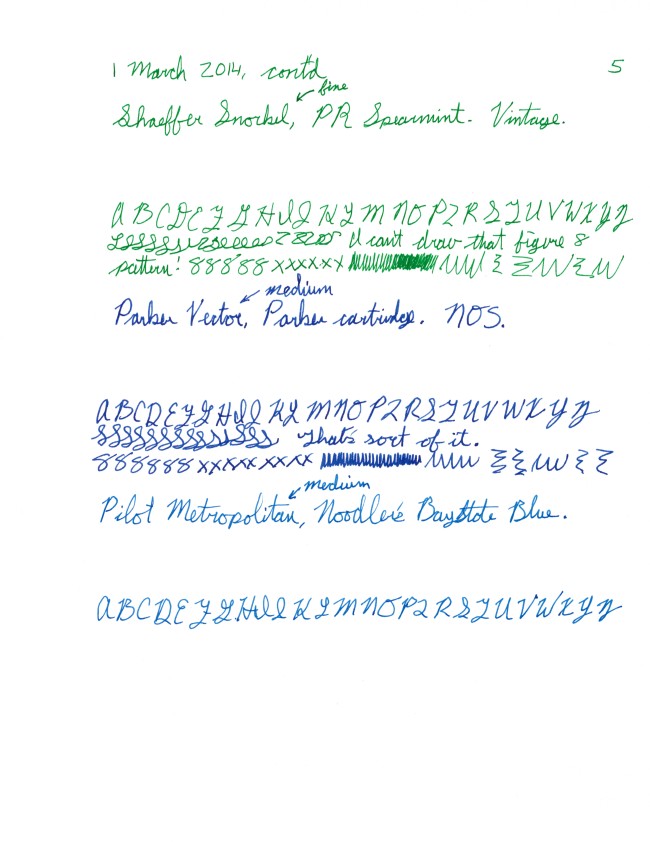 1 March 2014, cont'd 5
fine
Shaeffer Snorkel, PR Spearmint. Vintage.
A B C D E F G H I J K L M N O P Q R S T U V W X Y Z
I can't draw that figure 8
pattern! 88888 xxxxxx
medium
Parker Vector, Parker cartridge. NOS.
A B C D E F G H I J K L M N O P Q R S T U V W X Y Z
That's sort of it.
888888 xxxxxxxxxx
medium
Pilot Metropolitan, Noodler's Baystate Blue.
A B C D E F G H I J K L M N O P Q R S T U V W X Y Z